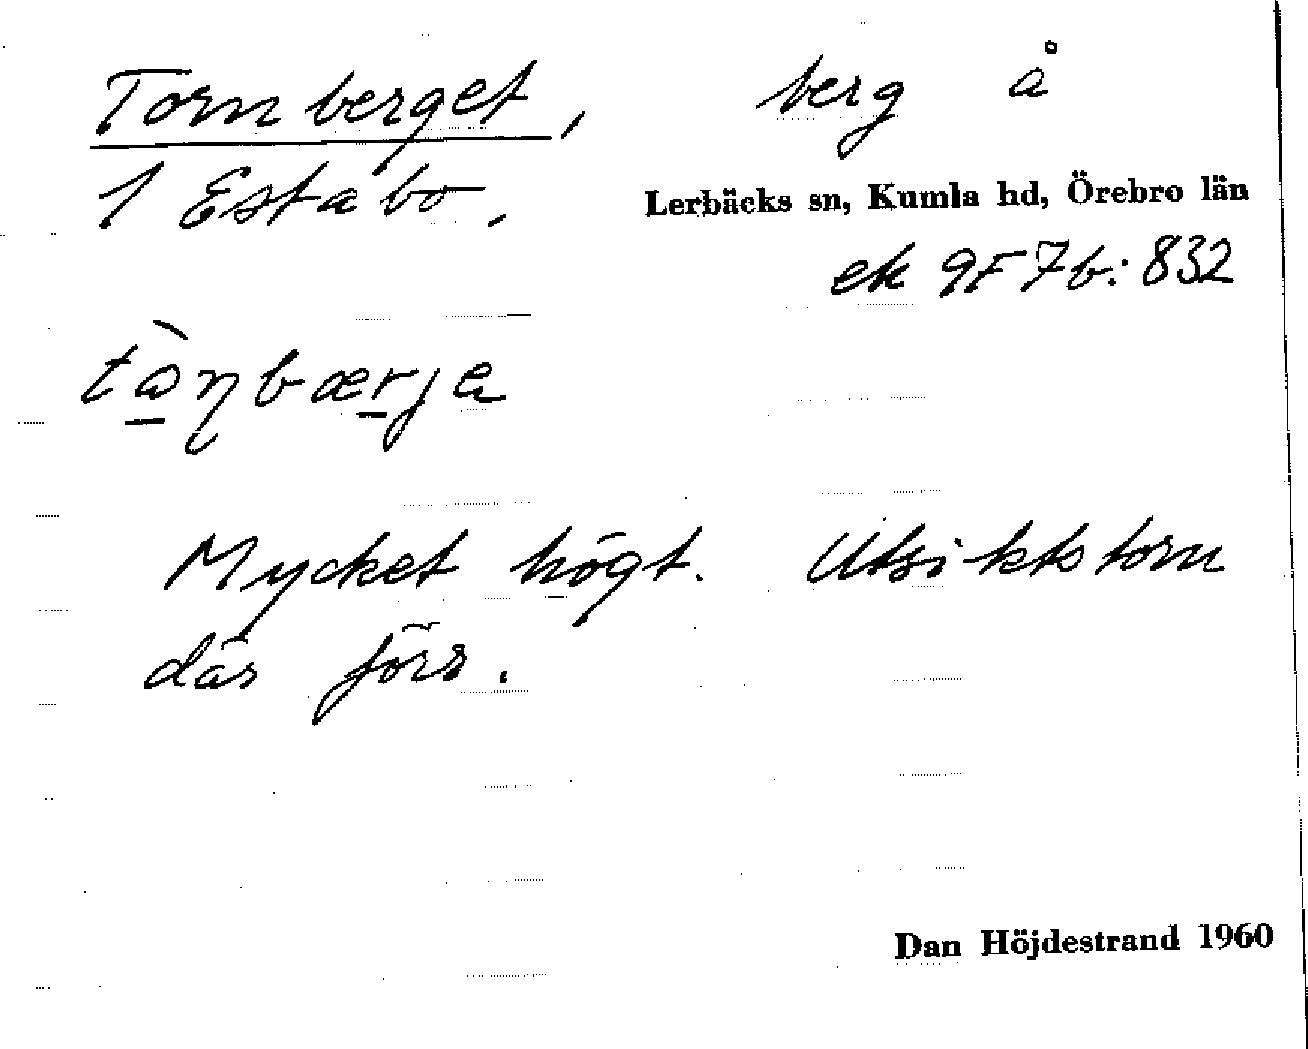 Tornberget, berg å
1 Estabo, Lerbäcks sn, Kumla hd, Örebro län
ek 9F7b: 832
tàṉbæṟja
Mycket högt. Utsiktstorn
där förr.
Dan Höjdestrand 1960